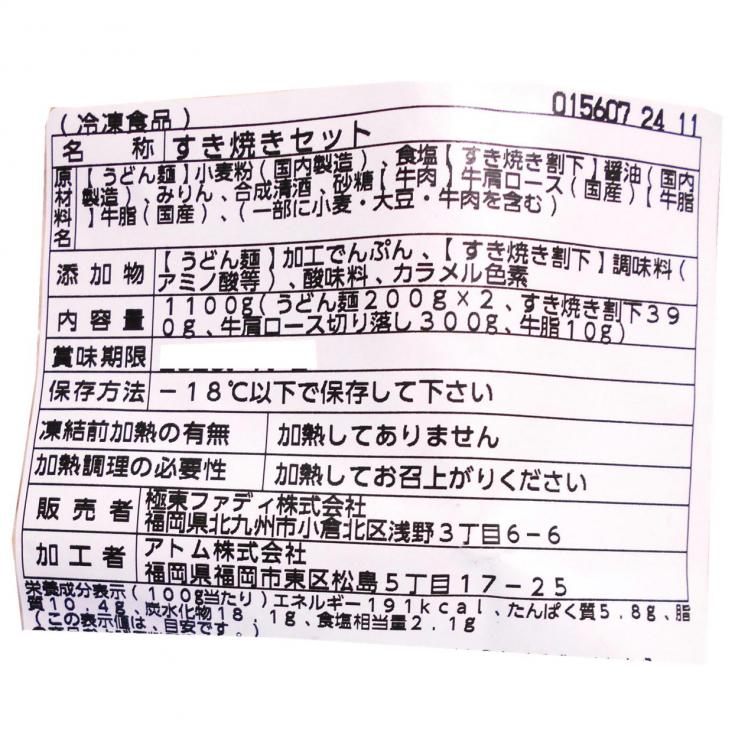 015607 24 11
(冷凍食品)
名称 すき焼きセット
原材料名 【うどん麺】小麦粉(国内製造)、食塩【すき焼き割下】醤油(国内
製造)、みりん、合成清酒、砂糖【牛肉】牛肩ロース(国産)【牛脂
】牛脂(国産)、(一部に小麦・大豆・牛肉を含む)
添加物 【うどん麺】加工でんぷん、【すき焼き割下】調味料(
アミノ酸等)、酸味料、カラメル色素
内容量 1100g(うどん麺200g×2、すき焼き割下39
0g、牛肩ロース切り落し300g、牛脂10g)
賞味期限
保存方法 -18℃以下で保存して下さい
凍結前加熱の有無 加熱してありません
加熱調理の必要性 加熱してお召上がりください
販売者 極東ファディ株式会社
福岡県北九州市小倉北区浅野3丁目6-6
加工者 アトム株式会社
福岡県福岡市東区松島5丁目17-25
栄養成分表示(100g当たり)エネルギー191kcal、たんぱく質5.8g、脂
質10.4g、炭水化物18.1g、食塩相当量2.1g
(この表示値は、目安です。)